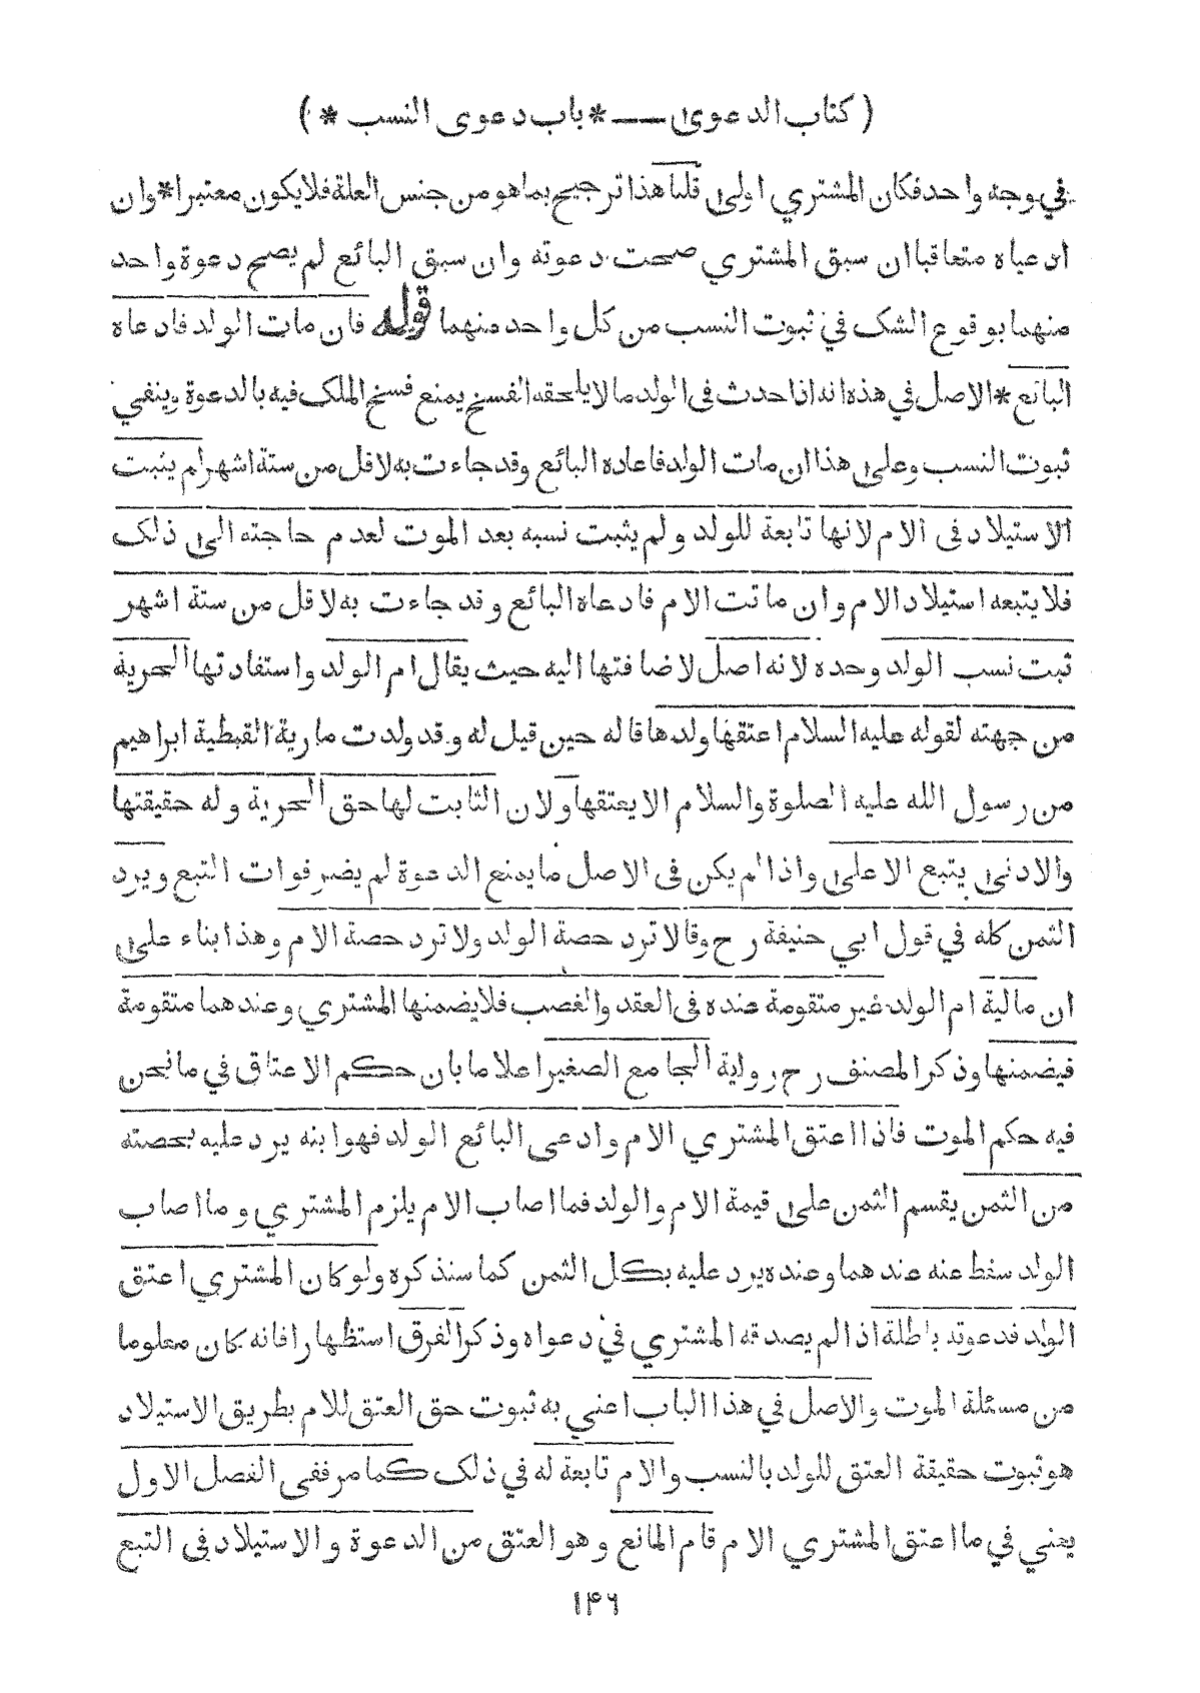 ( كتاب الدعوى — * باب دعوى النسب * )
في وجه واحد فكان المشتري اولى قلنا هذا ترجيح بما هو من جنس العلة فلا يكون معتبرا * وان
ادعياه متعاقبا ان سبق المشتري صحت دعوته وان سبق البائع لم يصح دعوة واحد
منهما بوقوع الشك في ثبوت النسب من كل واحد منهما قوله فان مات الولد فادعاه
البائع * الاصل في هذه انه اذا حدث فى الولد ما لا يلحقه الفسخ يمنع فسخ الملك فيه بالدعوة وينفي
ثبوت النسب وعلى هذا ان مات الولد فاعاده البائع وقد جاءت به لاقل من ستة اشهر لم يثبت
الاستيلاد فى الام لانها تابعة للولد ولم يثبت نسبه بعد الموت لعدم حاجته الى ذلك
فلا يتبعه استيلاد الام وان ماتت الام فادعاه البائع وقد جاءت به لاقل من ستة اشهر
ثبت نسب الولد وحده لانه اصل لاضافتها اليه حيث يقال ام الولد واستفادتها الحرية
من جهته لقوله عليه السلام اعتقها ولدها قاله حين قيل له وقد ولدت مارية القبطية ابراهيم
من رسول الله عليه الصلوة والسلام الا يعتقها ولان الثابت لها حق الحرية وله حقيقتها
والادنى يتبع الاعلى واذا لم يكن فى الاصل ما يمنع الدعوة لم يضر فوات التبع ويرد
الثمن كله في قول ابي حنيفة رح وقالا ترد حصة الولد ولا ترد حصة الام وهذا بناء على
ان مالية ام الولد غير متقومة عنده فى العقد والغصب فلا يضمنها المشتري وعندهما متقومة
فيضمنها وذكر المصنف رح رواية الجامع الصغير اعلاما بان حكم الاعتاق في ما نحن
فيه حكم الموت فاذا اعتق المشتري الام وادعى البائع الولد فهو ابنه يرد عليه بحصته
من الثمن يقسم الثمن على قيمة الام والولد فما اصاب الام يلزم المشتري وما اصاب
الولد سقط عنه عندهما وعنده يرد عليه بكل الثمن كما سنذكره ولو كان المشتري اعتق
الولد فدعوته باطلة اذا لم يصدقه المشتري في دعواه وذكر الفرق استظهارا فانه كان معلوما
من مسئلة الموت والاصل في هذا الباب اعني به ثبوت حق العتق للام بطريق الاستيلاد
هو ثبوت حقيقة العتق للولد بالنسب والام تابعة له في ذلك كما مر ففى الفصل الاول
يعني في ما اعتق المشتري الام قام المانع وهو العتق من الدعوة والاستيلاد فى التبع
۱۴۶